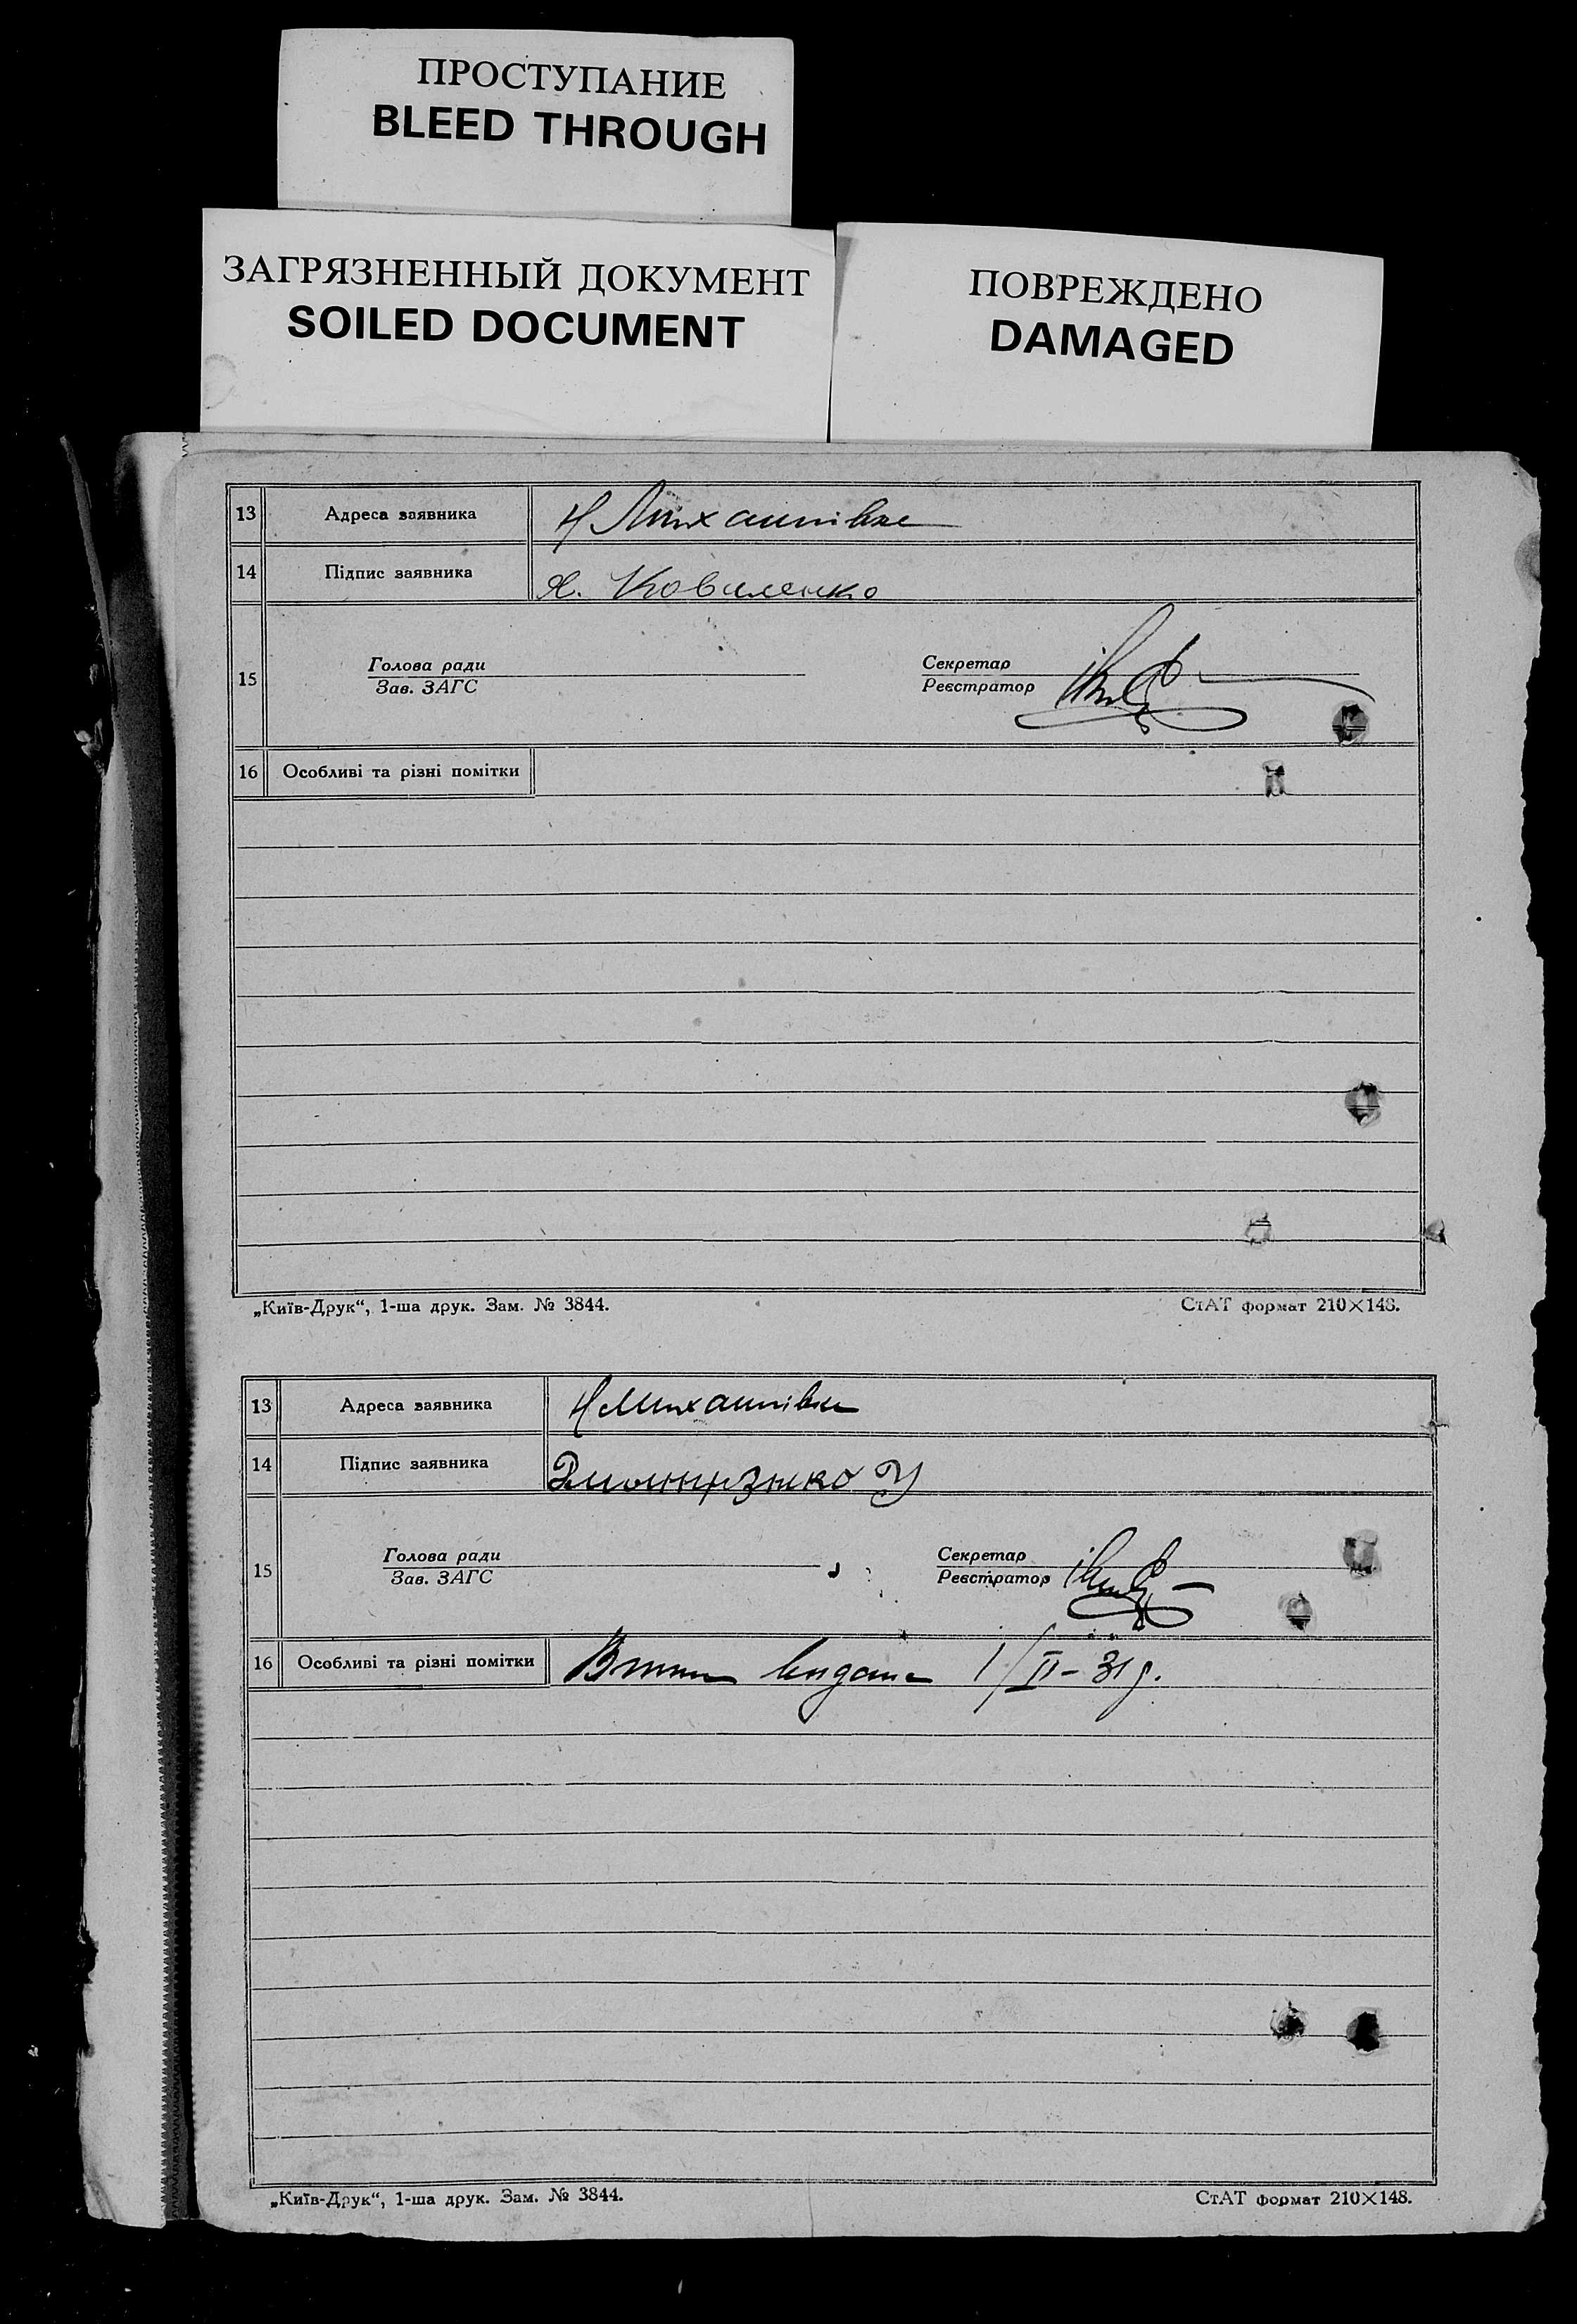 ПРОСТУПАНИЕ
BLEED THROUGH
ЗАГРЯЗНЕННЫЙ ДОКУМЕНТ
SOILED DOCUMENT
ПОВРЕЖДЕНО
DAMAGED
13 Адреса заявника Н Михайлівка
14 Підпис заявника Я. Коваленко
15 Голова ради
Зав. ЗАГС
Секретар
Реєстратор
16 Особливі та різні помітки
„Київ-Друк“, 1-ша друк. Зам. № 3844.
СтАТ формат 210×148.
13 Адреса заявника Н Михайлівка
14 Підпис заявника
15 Голова ради
Зав. ЗАГС
Секретар
Реєстратор
16 Особливі та різні помітки видана 1/II-31р.
„Київ-Друк“, 1-ша друк. Зам. № 3844.
СтАТ формат 210×148.